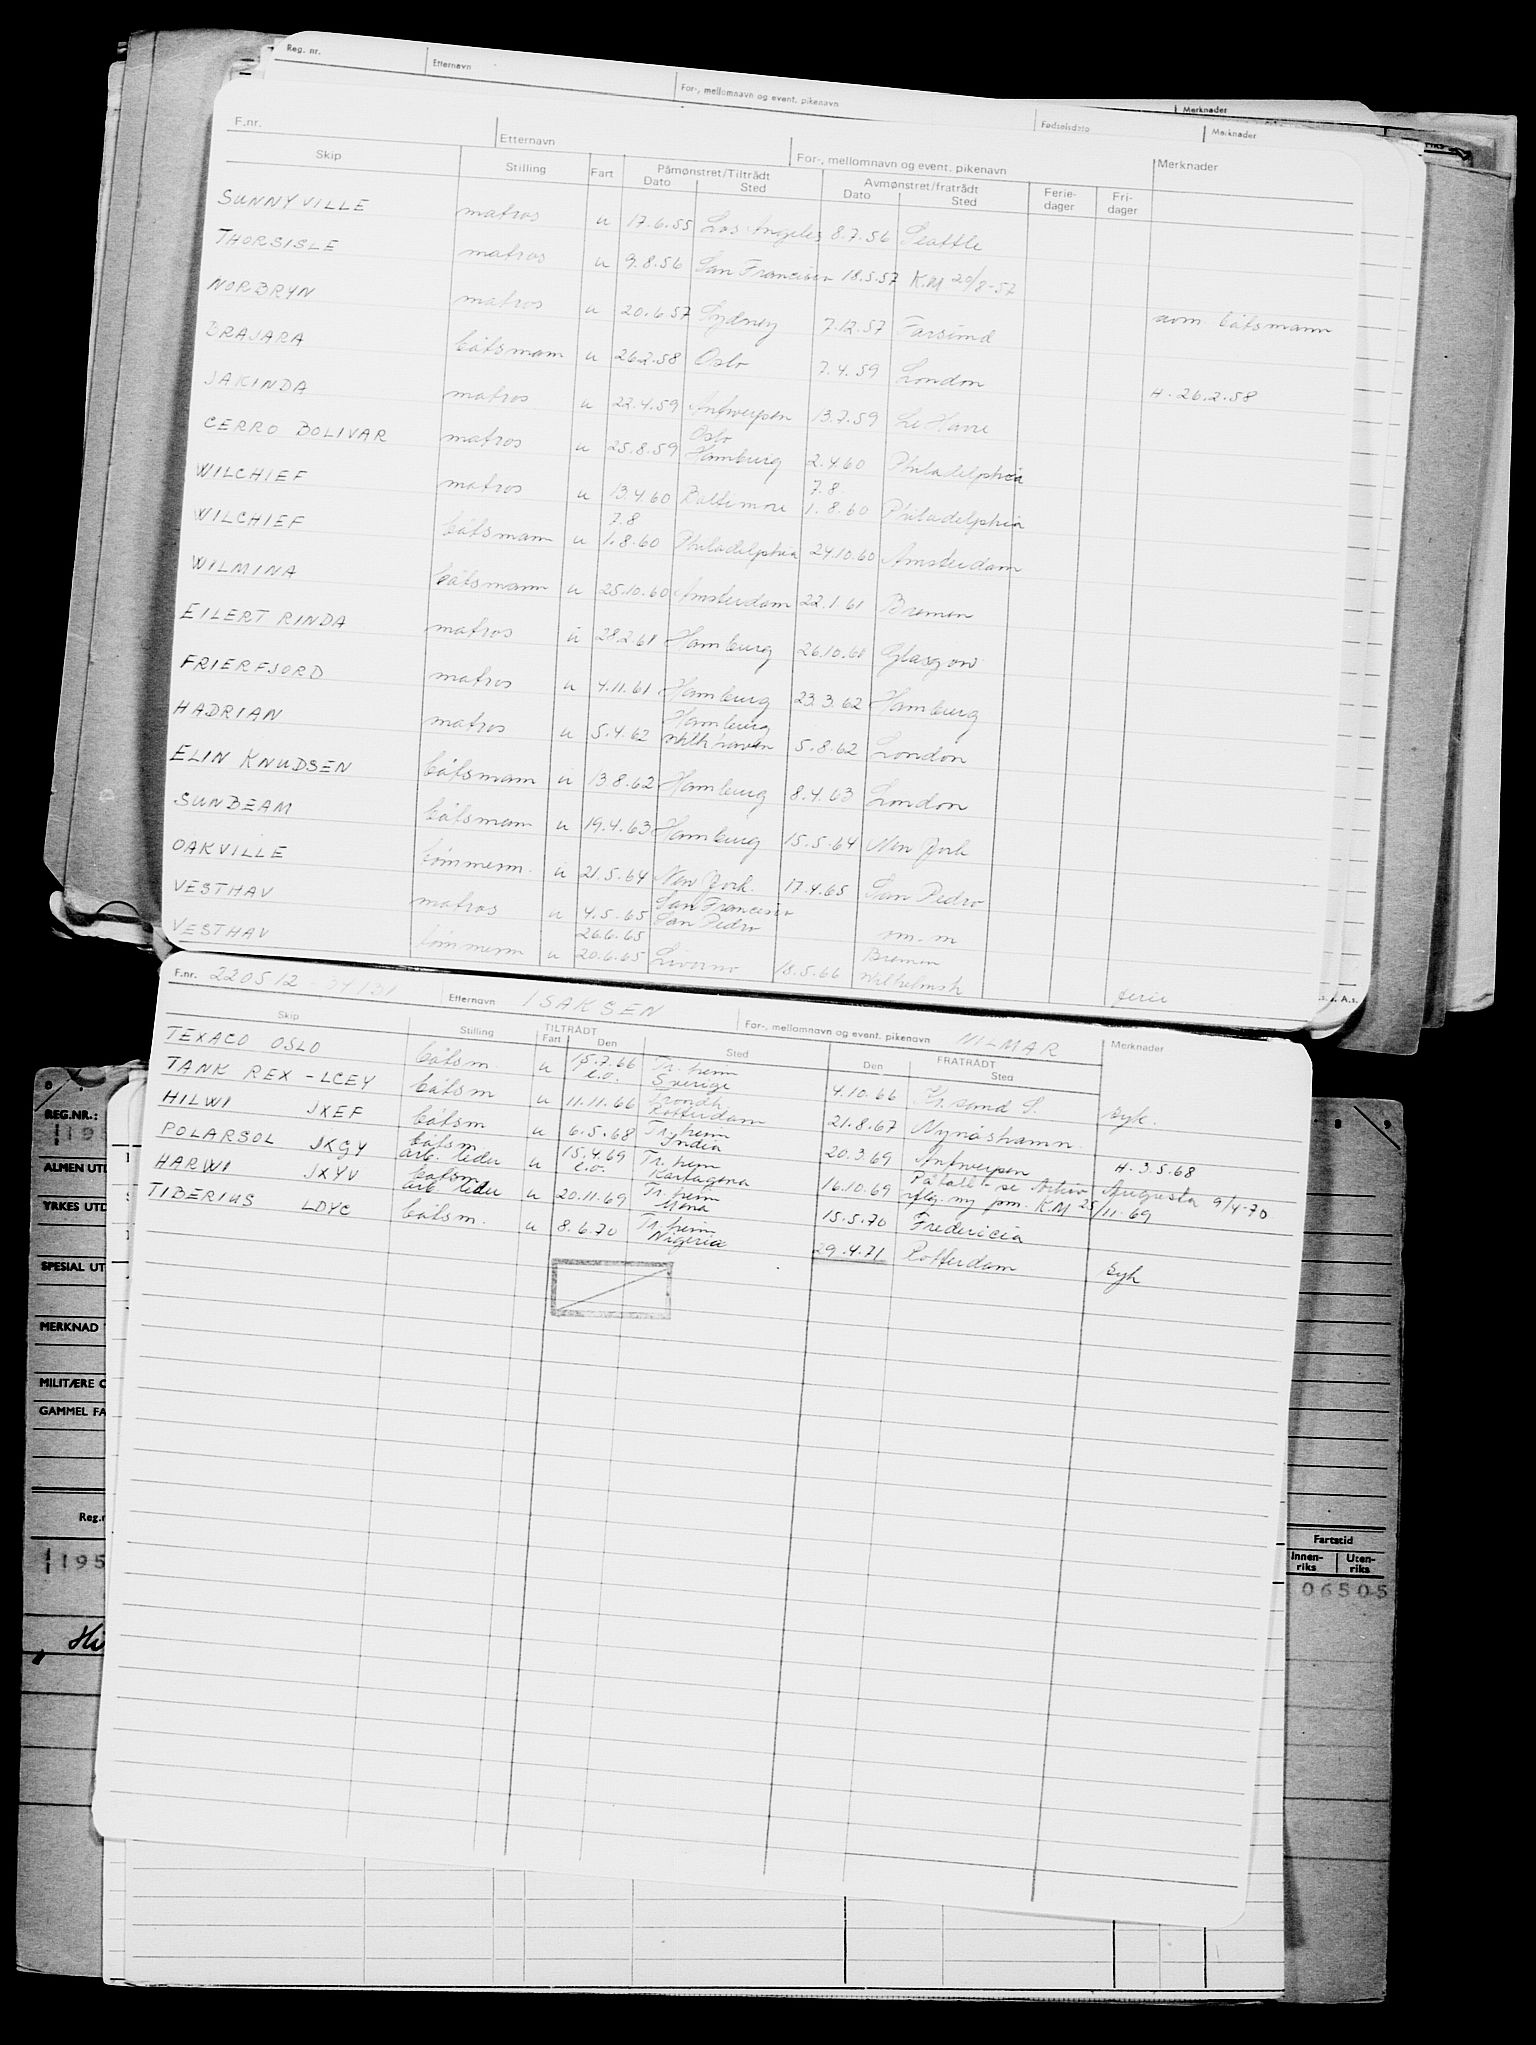 Reg. nr. Etternavn For-, mellomnavn og event. pikenavn Merknader
Fødselsdato Merknader
F.nr. Etternavn For-, mellomnavn og event. pikenavn Merknader
Skip Stilling Fart Påmønstret/Tiltrådt Avmønstret/fratrådt Ferie-dager Fri-dager
Dato Sted Dato Sted
SUNNYVILLE matros u 17.6.55 Los Angeles 8.7.56 Seattle
THORSISLE matros u 9.8.56 San Francisco 18.5.57 K.M 20/8-57
NORBRYN matros u 20.6.57 Sydney 7.12.57 Farsund som båtsmann
BRAJARA båtsmann u 26.2.58 Oslo 7.4.59 London H. 26.2.58
JAKINDA matros u 22.4.59 Antwerpen 13.7.59 Le Havre
CERRO BOLIVAR matros u 25.8.59 Oslo Hamburg 2.4.60 Philadelphia
WILCHIEF matros u 13.4.60 Baltimore 7.8. 1.8.60 Philadelphia
WILCHIEF båtsmann u 7.8 1.8.60 Philadelphia 24.10.60 Amsterdam
WILMINA båtsmann u 25.10.60 Amsterdam 22.1.61 Bremen
EILERT RINDA matros u 28.2.61 Hamburg 26.10.61 Glasgow
FRIERFJORD matros u 4.11.61 Hamburg 23.3.62 Hamburg
HADRIAN matros u 5.4.62 Hamburg Wilh'haven 5.8.62 London
ELIN KNUDSEN båtsmann u 13.8.62 Hamburg 8.4.63 London
SUNBEAM båtsmann u 19.4.63 Hamburg 15.5.64 New York
OAKVILLE tømmerm. u 21.5.64 New York. 17.4.65 San Pedro
VESTHAV matros u 4.5.65 San Francisco San Pedro m.m
VESTHAV tømmerm u 26.6.65 20.6.65 Livorno 18.5.66 Bremen Wilhelmsh ferie
F.nr. 220512 - 34131 Etternavn ISAKSEN For-, mellomnavn og event. pikenavn HILMAR Merknader
Skip Stilling TILTRÅDT FRATRÅDT
Fart Den Sted Den Sted
TEXACO OSLO båtsm. u 15.7.66 e.o. Tr.heim Sverige 4.10.66 Kr.sand S. syk.
TANK REX - LCEY båtsm u 11.11.66 Trondh. Rotterdam 21.8.67 Nynäshamn.
HILWI JXEF båtsm u 6.5.68 Tr.heim India 20.3.69 Antwerpen H. 3.5.68
POLARSOL JXGY båtsm arb. leder u 15.4.69 e.o. Tr.heim Kartagena 16.10.69 Påtalt - se Arkiv Augusta 9/4-70
ny pm. K.M 25/11.69
HARWI JXYV båtsm arb. leder u 20.11.69 Tr.heim Mena 15.5.70 Fredericia
TIBERIUS LDYC båtsm. u 8.6.70 Tr.heim Nigeria 29.4.71 Rotterdam syk
REG.NR.:
ALMEN UTD
YRKES UTD
SPESIAL UT
MERKNAD
MILITÆRE
GAMMEL FA
Reg.n
195
8 9
Fartstid
Innen-riks Uten-riks
06505